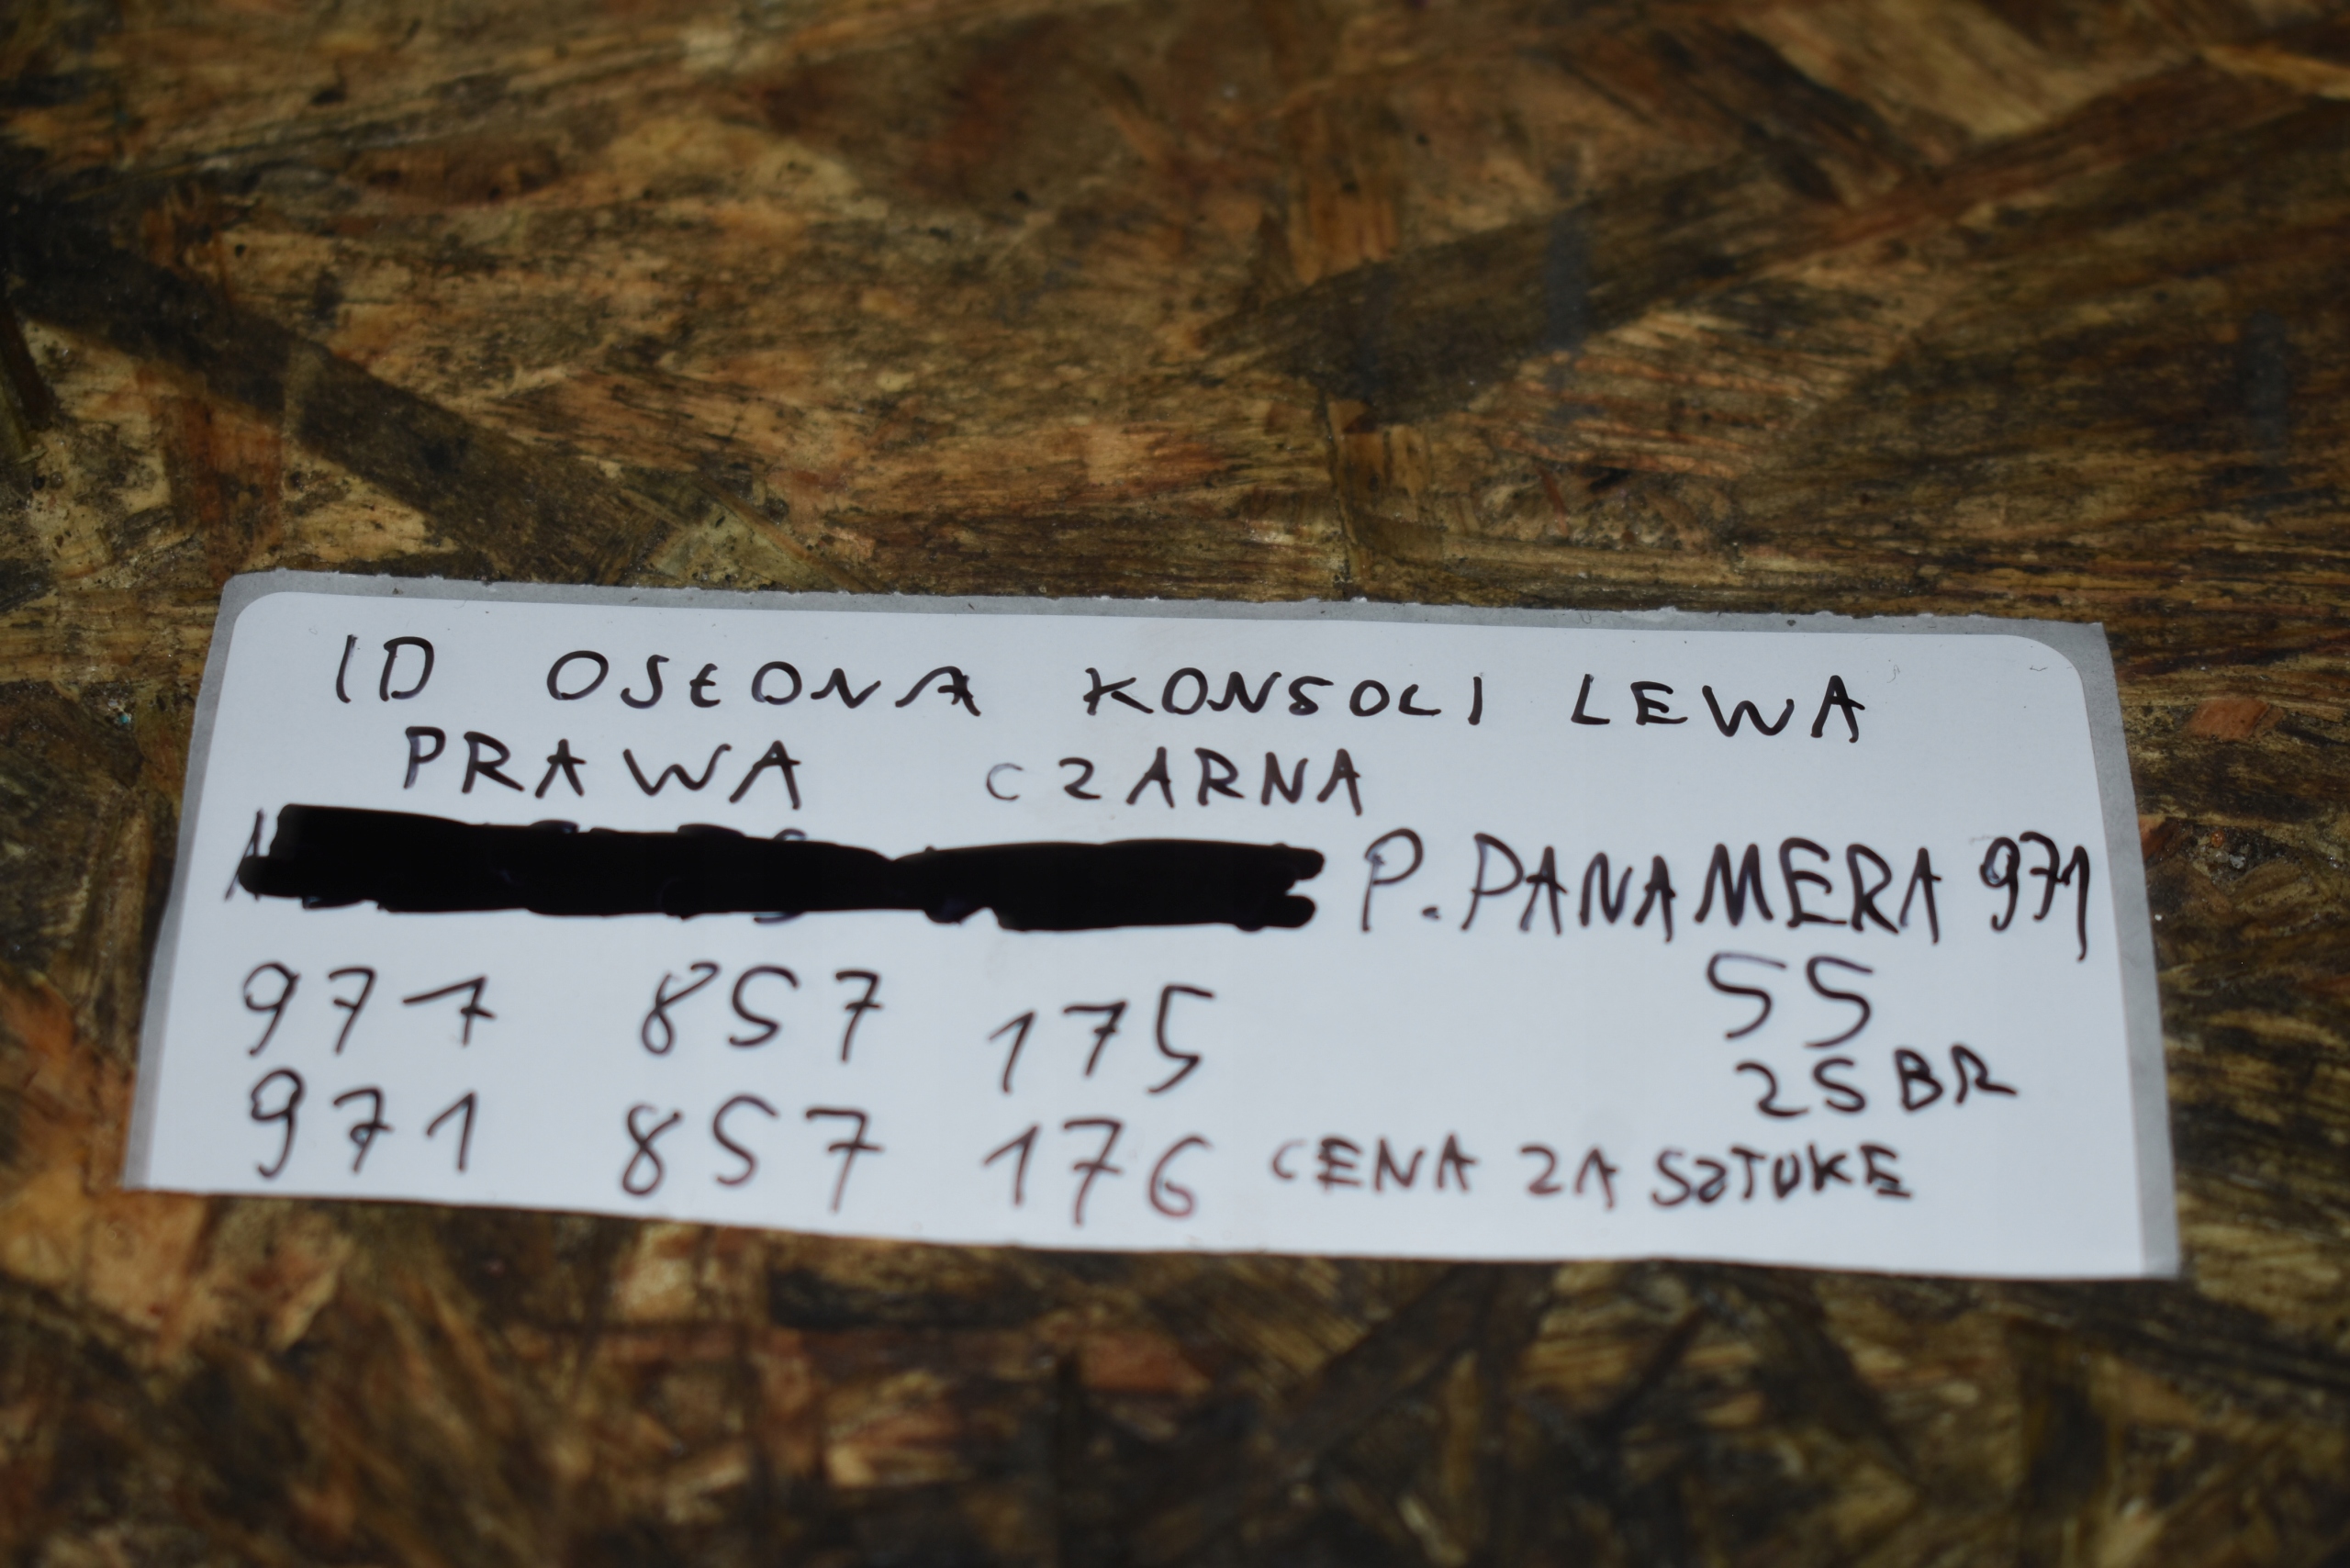 ID OSŁONA KONSOLI LEWA
PRAWA CZARNA
P. PANAMERA 971
971 857 175 55
25 BR
971 857 176 CENA ZA SZTUKE